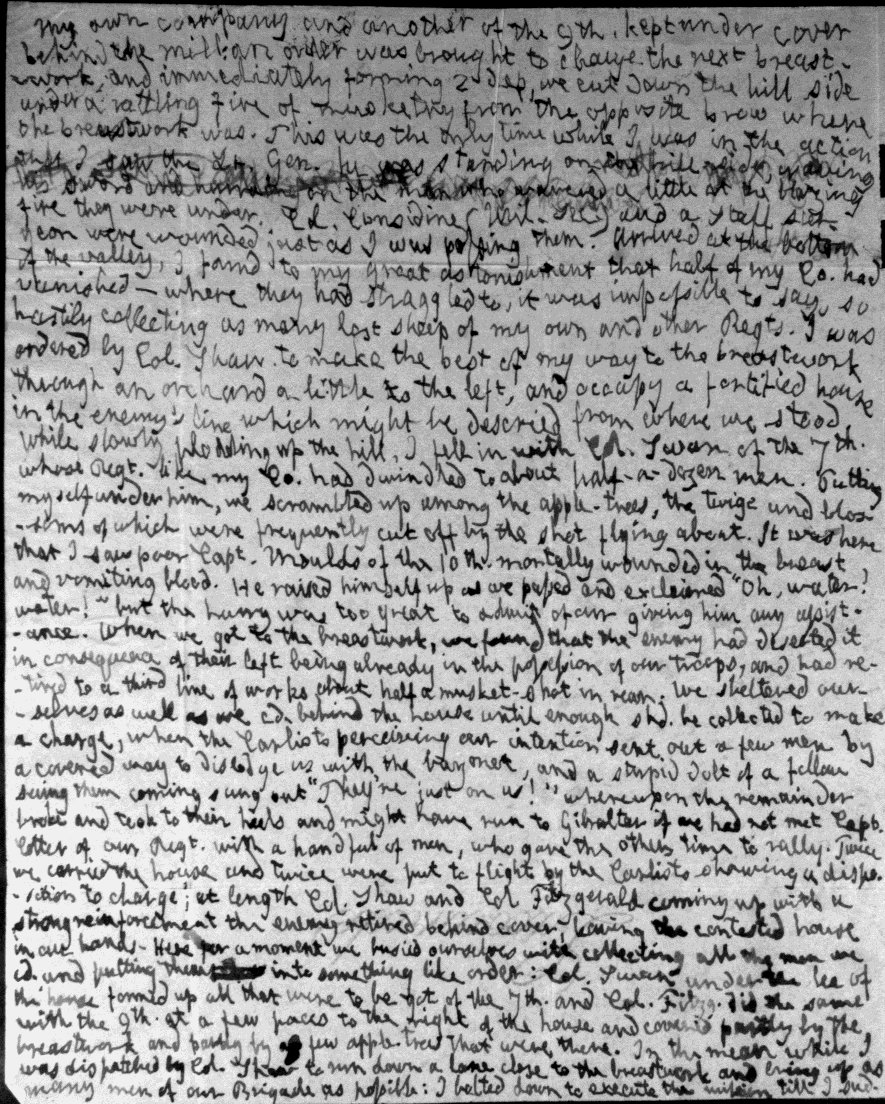 My own company and another of the 9th. kept under cover
behind the mill an order was brought to charge the next breast-
-work, and immediately forming 2 dep, we cut down the hill side
under a rattling fire of musketry from the opposite brow where
the breastwork was. This was the only time while I was in the action
that I saw the Lt. Gen. he was standing on the hill side, waving
his sword and on the men who wavered a little at the blazing
fire they were under. Col. Considine (Mil. Sec.) and a staff sur-
geon were wounded just as I was passing them. Arrived at the bottom
of the valley, I found to my great astonishment that half of my Co. had
vanished — where they had straggled to, it was impossible to say, so
hastily collecting as many lost sheep of my own and other Regts. I was
ordered by Col. Shaw to make the best of my way to the breastwork
through an orchard a little to the left, and occupy a fortified house
in the enemy's line which might be descried from where we stood.
While slowly plodding up the hill, I fell in with Col. Swan of the 7th.
whose Regt. like my Co. had dwindled to about half-a-dozen men. Putting
myself under him, we scrambled up among the apple-trees, the twigs and blos-
-soms of which were frequently cut off by the shot flying about. It was here
that I saw poor Capt. Moulds of the 10th. mortally wounded in the breast
and vomiting blood. He raised himself up as we passed and exclaimed "Oh, water!
water!" but the hurry was too great to admit of our giving him any assist-
-ance. When we got to the breastwork, we found that the enemy had deserted it
in consequence of their left being already in the possession of our troops, and had re-
-tired to a third line of works about half a musket-shot in rear. We sheltered our-
-selves as well as we cd. behind the house until enough shd. be collected to make
a charge, when the Carlists perceiving our intention sent out a few men by
a covered way to dislodge us with the bayonet, and a stupid dolt of a fellow
seeing them coming sung out "They're just on us!" whereupon the remainder
broke and took to their heels and might have run to Gibralter if we had not met Capt.
Cotter of our Regt. with a handful of men, who gave the others time to rally. Twice
we carried the house and twice were put to flight by the Carlists showing a dispo-
-sition to charge; at length Col. Shaw and Col Fitzgerald coming up with a
strong reinforcement the enemy retired behind cover, leaving the contested house
in our hands - Here for a moment we busied ourselves with collecting all the men we
cd. and putting them into something like order: Col. Swan under the lee of
the house formed up all that were to be got of the 7th. and Col. Fitzg. did the same
with the 9th. at a few paces to the right of the house and covered partly by the
breastwork and partly by a few apple-trees that were there. In the mean while I
was dispatched by Col. Shaw to run down a lane close to the breastwork and bring up as
many men of our Brigade as possible: I bolted down to execute the mission till I sud-